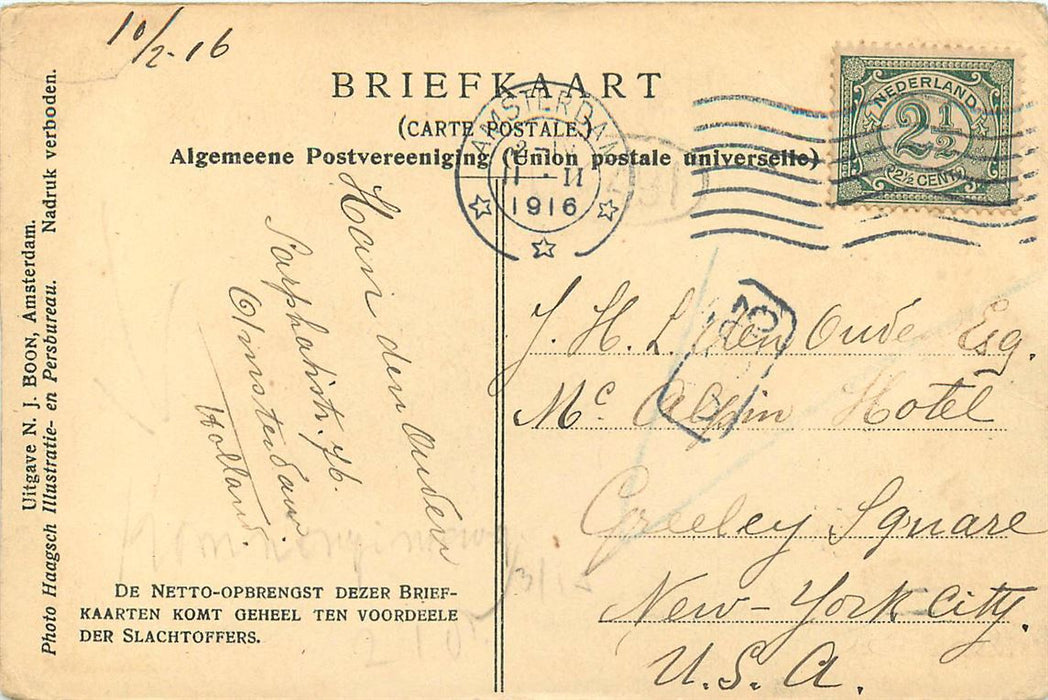 10/2-16
BRIEFKAART
(CARTE POSTALE.)
Algemeene Postvereeniging (Union postale universelle)
AMSTERDAM
11·II
1916
NEDERLAND
2½
(2½ CENT)
Uitgave N. J. BOON, Amsterdam.
Photo Haagsch Illustratie- en Persbureau. Nadruk verboden.
Ham den Ouden
Sarphatistr. 76.
Amsterdam
Holland.
J. H. L. den Oude Esq.
Mc. Alpin Hotel
Greeley Square
New-York City.
U.S.A.
DE NETTO-OPBRENGST DEZER BRIEF-
KAARTEN KOMT GEHEEL TEN VOORDEELE
DER SLACHTOFFERS.